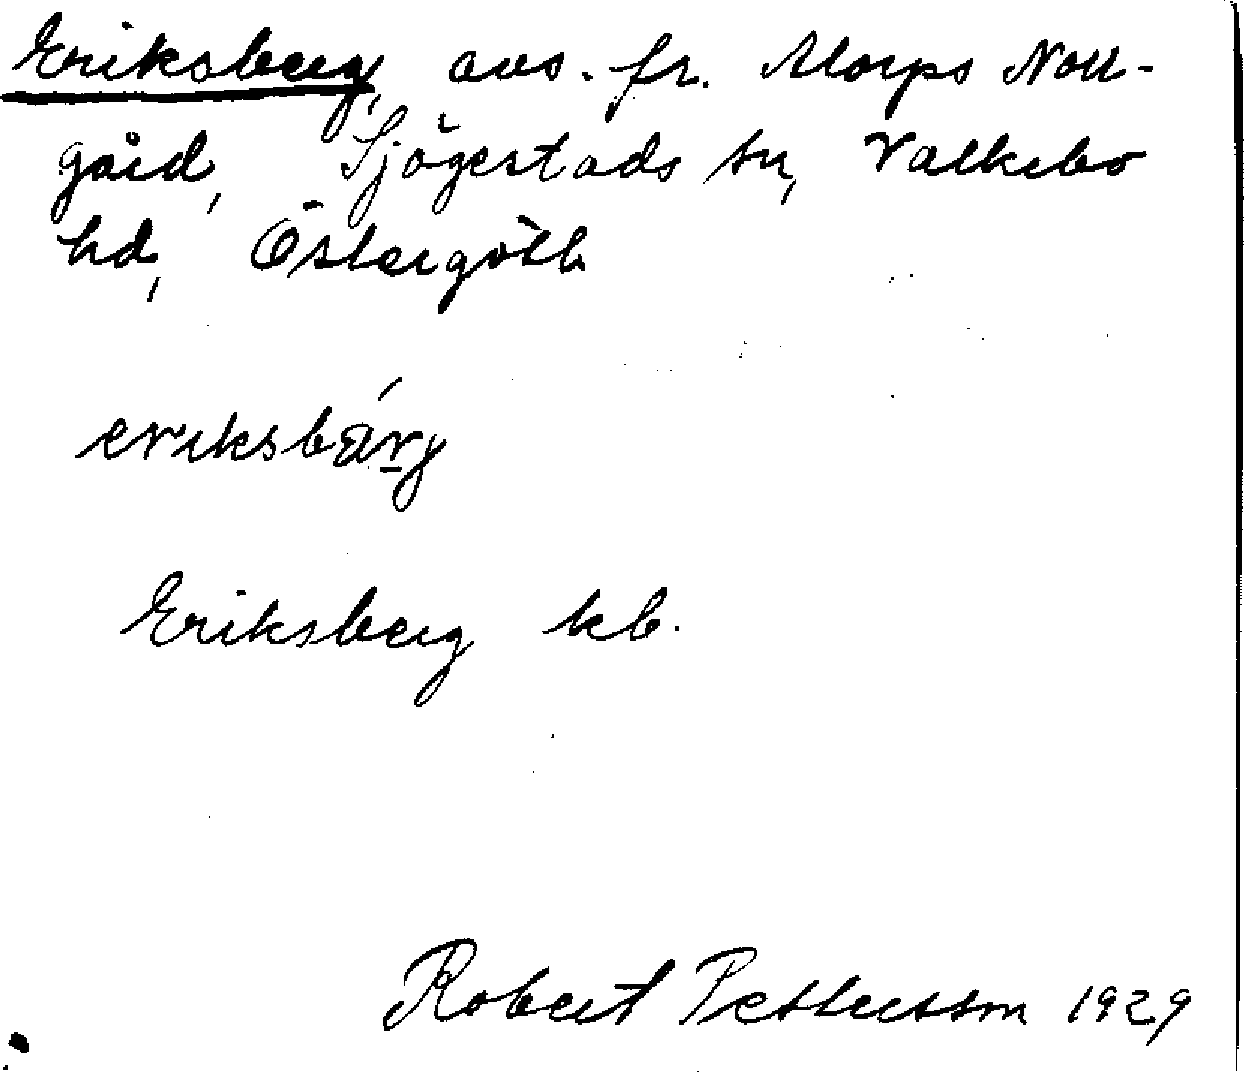 Eriksberg, avs. fr. Morps Norr-
gård, Sjögestads sn, Valkebo
hd, Östergötl.
eriksbärj
Eriksberg kb.
Robert Pettersson 1929